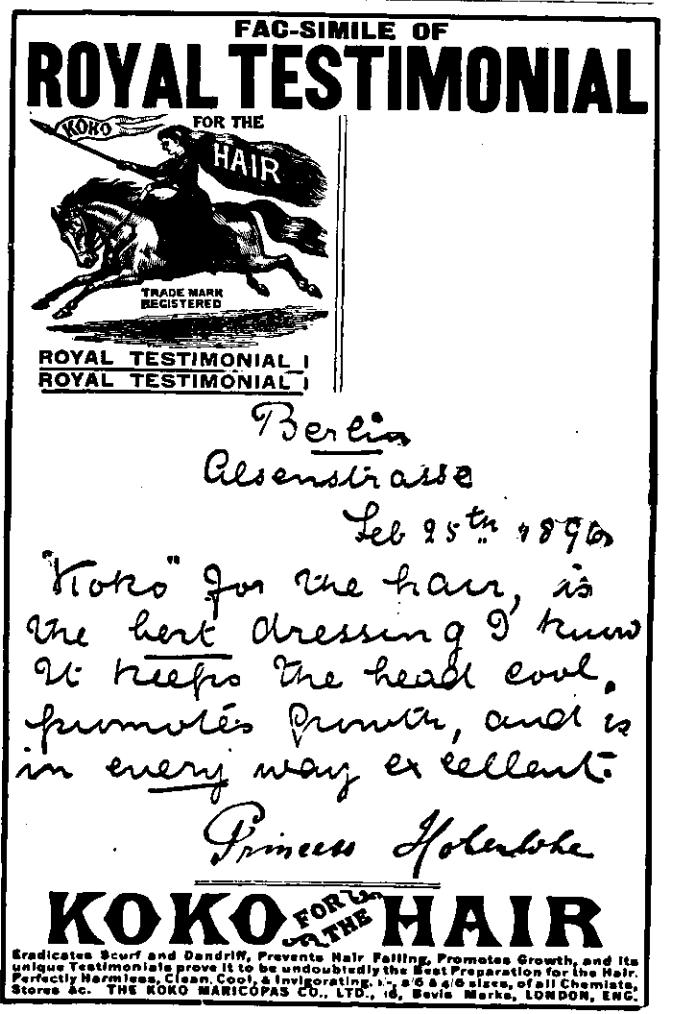 FAC-SIMILE OF
ROYAL TESTIMONIAL
KOKO
FOR THE
HAIR
TRADE MARK
REGISTERED
ROYAL TESTIMONIAL !
ROYAL TESTIMONIAL !
Berlin
Alsenstrasse
Feb 25th 1896
"Koko" for the hair, is
the best dressing I know
It keeps the head cool,
promotes growth, and is
in every way excellent.
Princess Hohenlohe
KOKO FOR THE HAIR
Eradicates Scurf and Dandriff, Prevents Hair Falling, Promotes Growth, and its
unique Testimonials prove it to be undoubtedly the Best Preparation for the Hair.
Perfectly Harmless, Clean, Cool, & Invigorating. 1/-, 2/6 & 4/6 sizes, of all Chemists,
Stores &c. THE KOKO MARICOPAS CO., LTD., 16, Bevis Marks, LONDON, ENG.